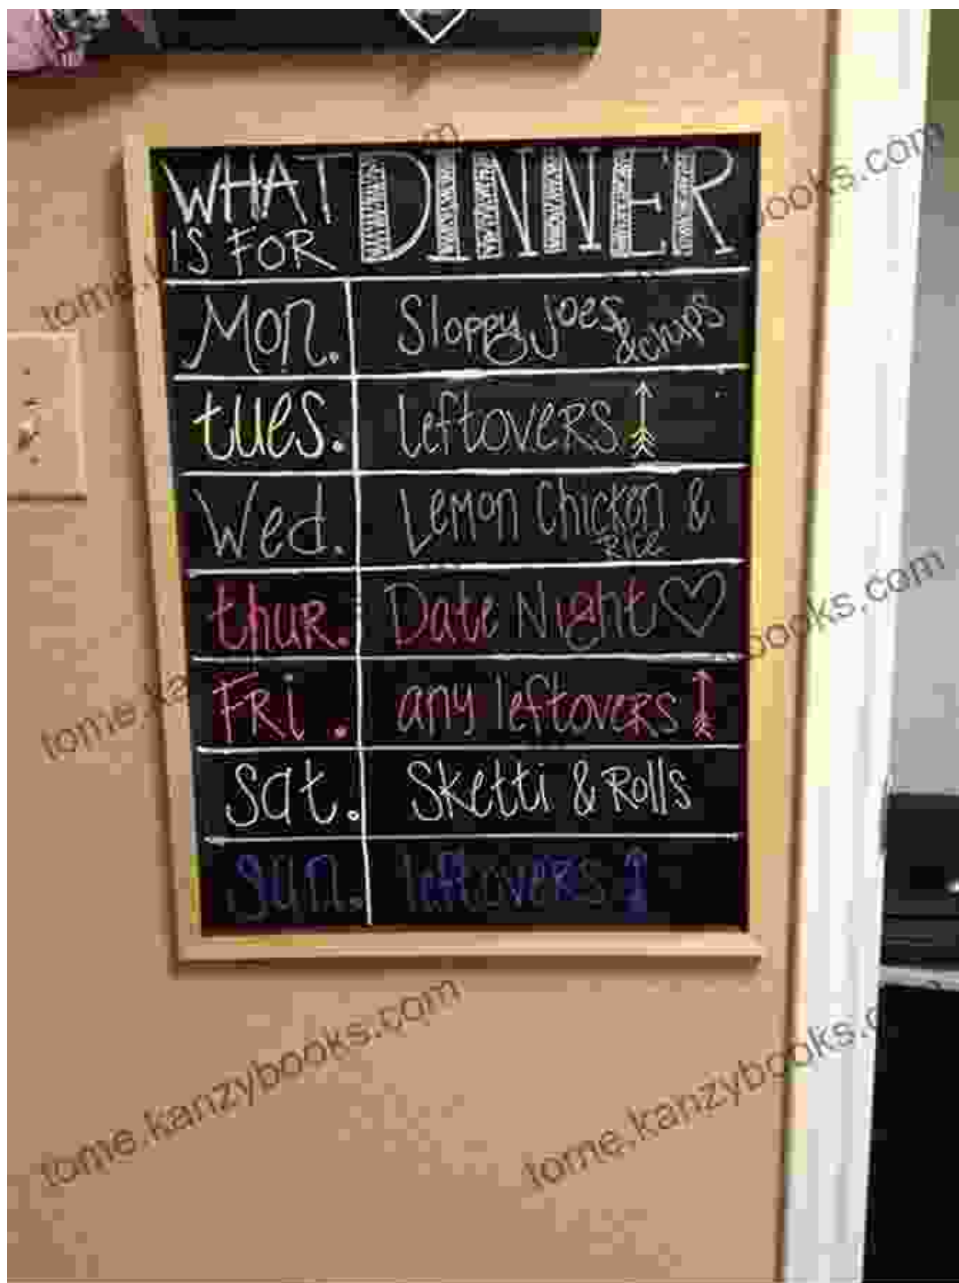 WHAT IS FOR DINNER
Mon. Sloppy joes & chips
tues. leftovers
Wed. Lemon Chicken & Rice
thur. Date Night
FRi. any leftovers
Sat. Sketti & Rolls
Sun. leftovers
books.com
tome.k
books.com
tome.ka
tome.kanzybooks.com
tome.kanzybooks.c